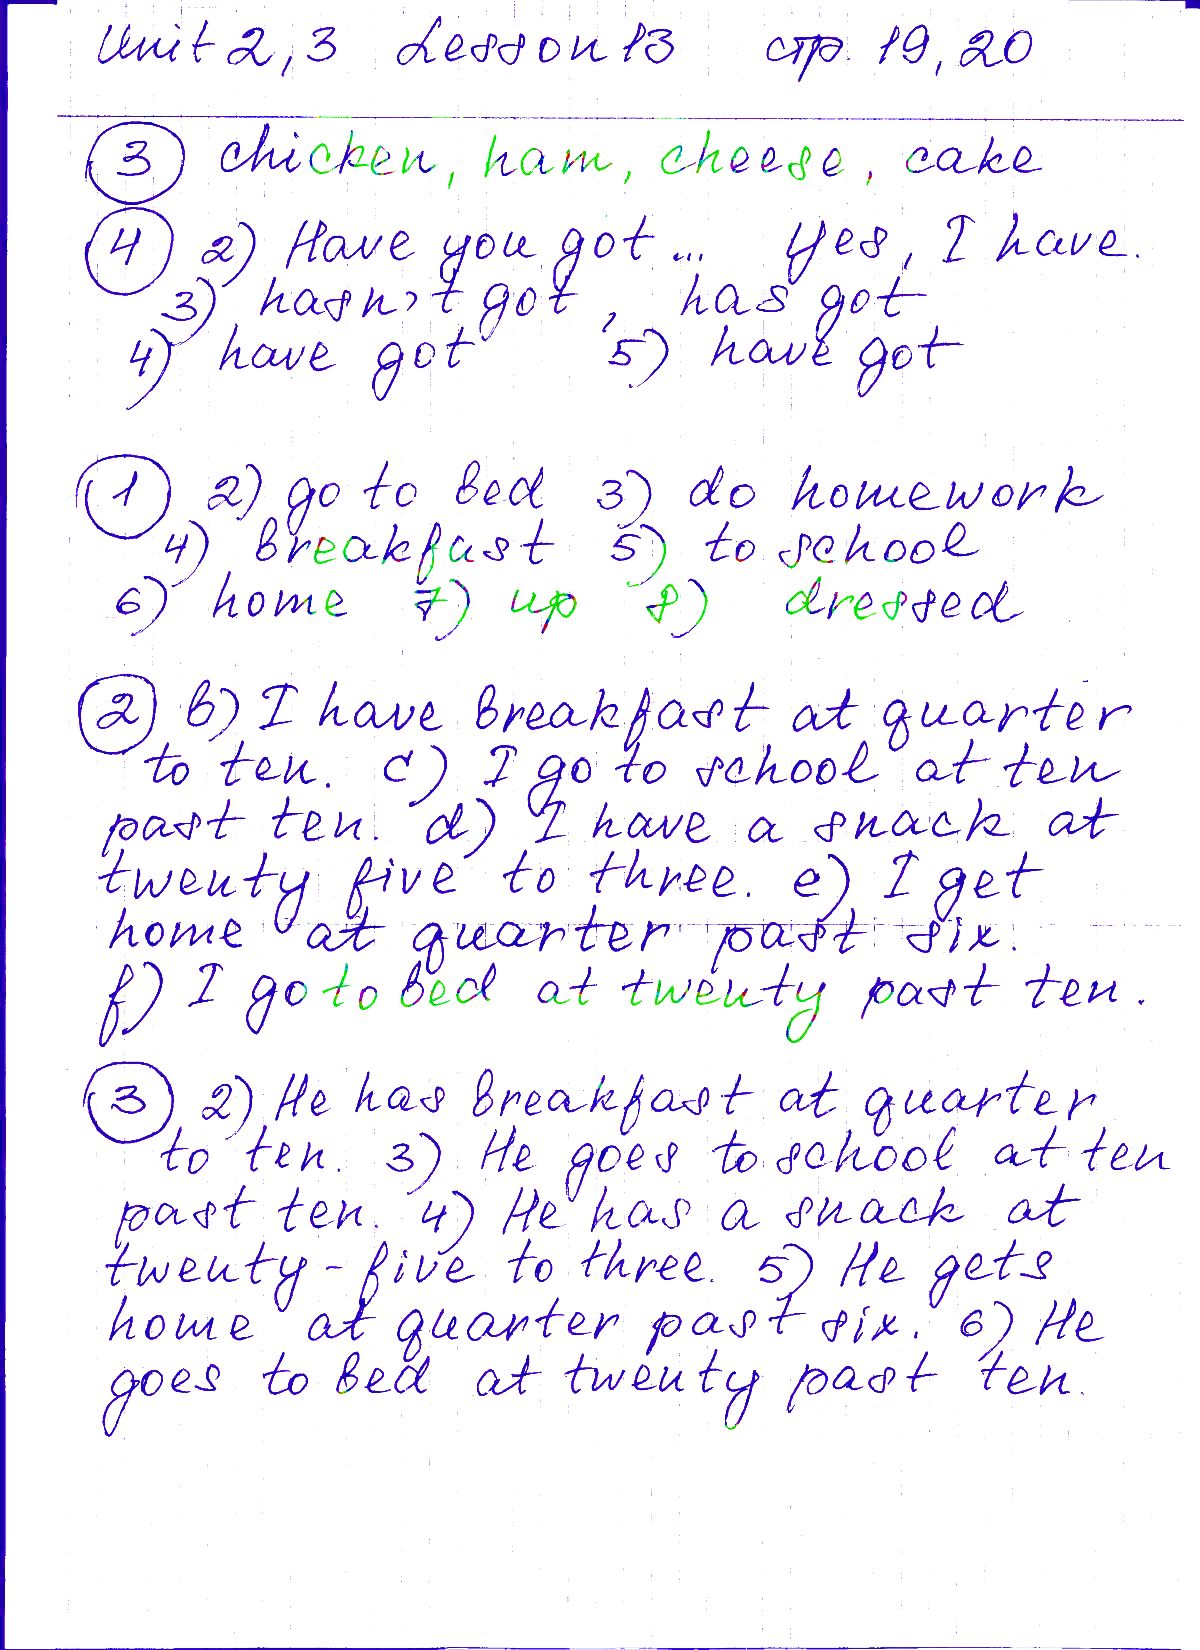 Unit 2, 3 Lesson 13 стр. 19, 20
3 chicken, ham, cheese, cake
4 2) Have you got... Yes, I have.
3) hasn't got, has got
4) have got 5) have got
1 2) go to bed 3) do homework
4) breakfast 5) to school
6) home 7) up 8) dressed
2 b) I have breakfast at quarter
to ten. c) I go to school at ten
past ten. d) I have a snack at
twenty five to three. e) I get
home at quarter past six.
f) I go to bed at twenty past ten.
3 2) He has breakfast at quarter
to ten. 3) He goes to school at ten
past ten. 4) He has a snack at
twenty-five to three. 5) He gets
home at quarter past six. 6) He
goes to bed at twenty past ten.